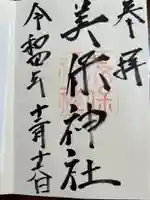 奉拝
美保神社
令和四年十二月十六日